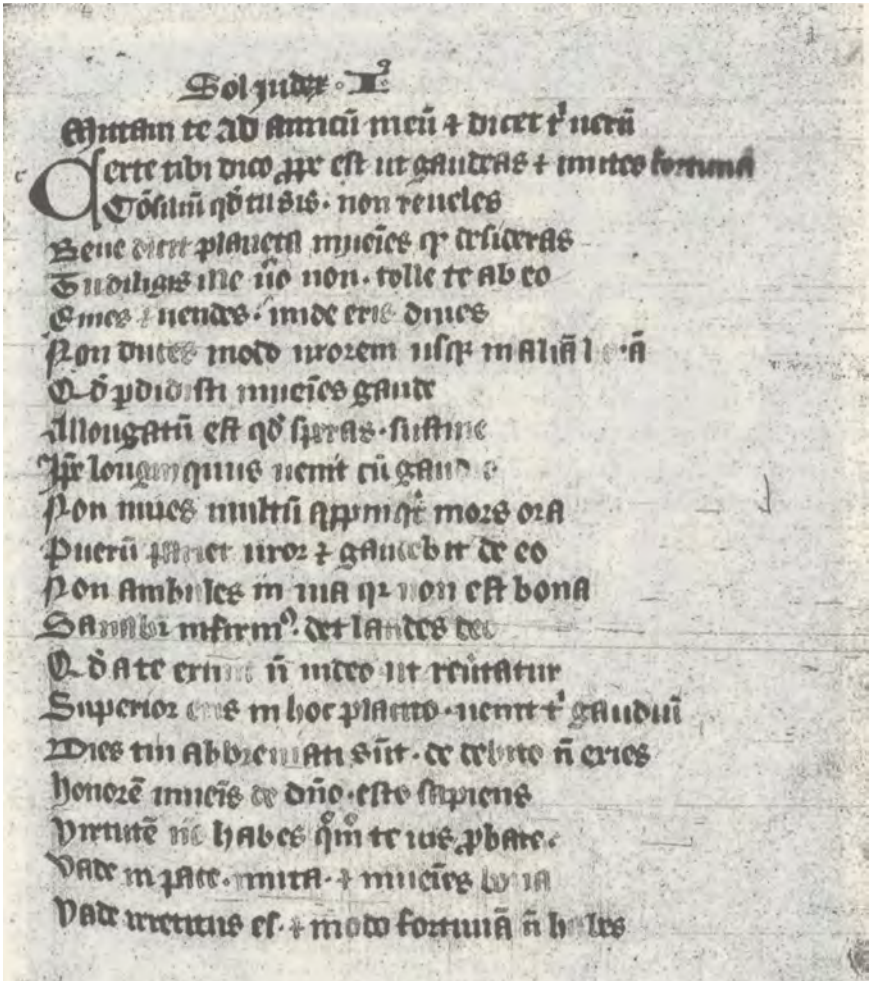 Sol iudex · Iꝰ
Mittam te ad amicū meū ⁊ dicet tⁱ uerū
Certe tibi dico ꝓpe est ut gaudeas ⁊ mutes fortunā
Cōsiliū qd̄ tu sis · non reueles
Bene dicit planeta inueīes qͥ desideras
Tu diligis ille ūo non · tolle te ab eo
Emes ⁊ uendes · inde eris diues
Non duces modo uxorem usqꝫ in aliā
Qd̄ ꝑdidisti inueīes gaude
Allongatū est qd̄ speras · sustine
Iꝑe longinquus uenit cū gaudio
Non uiues multū appīqͣt mors
Puerū pariet uxor ⁊ gaudebit de eo
Non ambules in uia qꝛ non est bona
Sanabit infirmꝰ · det laudes deo
Qd̄ a te exiuit n̄ uideo ut reūtatur
Superior eris in hoc placito · uenit tⁱ gaudiuꝫ
Dies tui abbreuiati sūt · de debito n̄ exies
Honorē inueīs de dn̄o · esto sapiens
Virtutē nō habes qm̄ te ꝓbare ·
Vade in pace · muta · ⁊ inueīes bona
Vade es · ⁊ modo fortunā n̄ habes